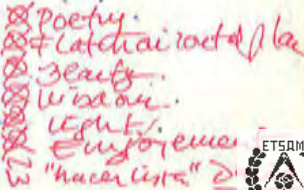 Poetry.
Beauty.
Wisdom.
Light.
Enjoyement
"hacer lista"
ETSAM